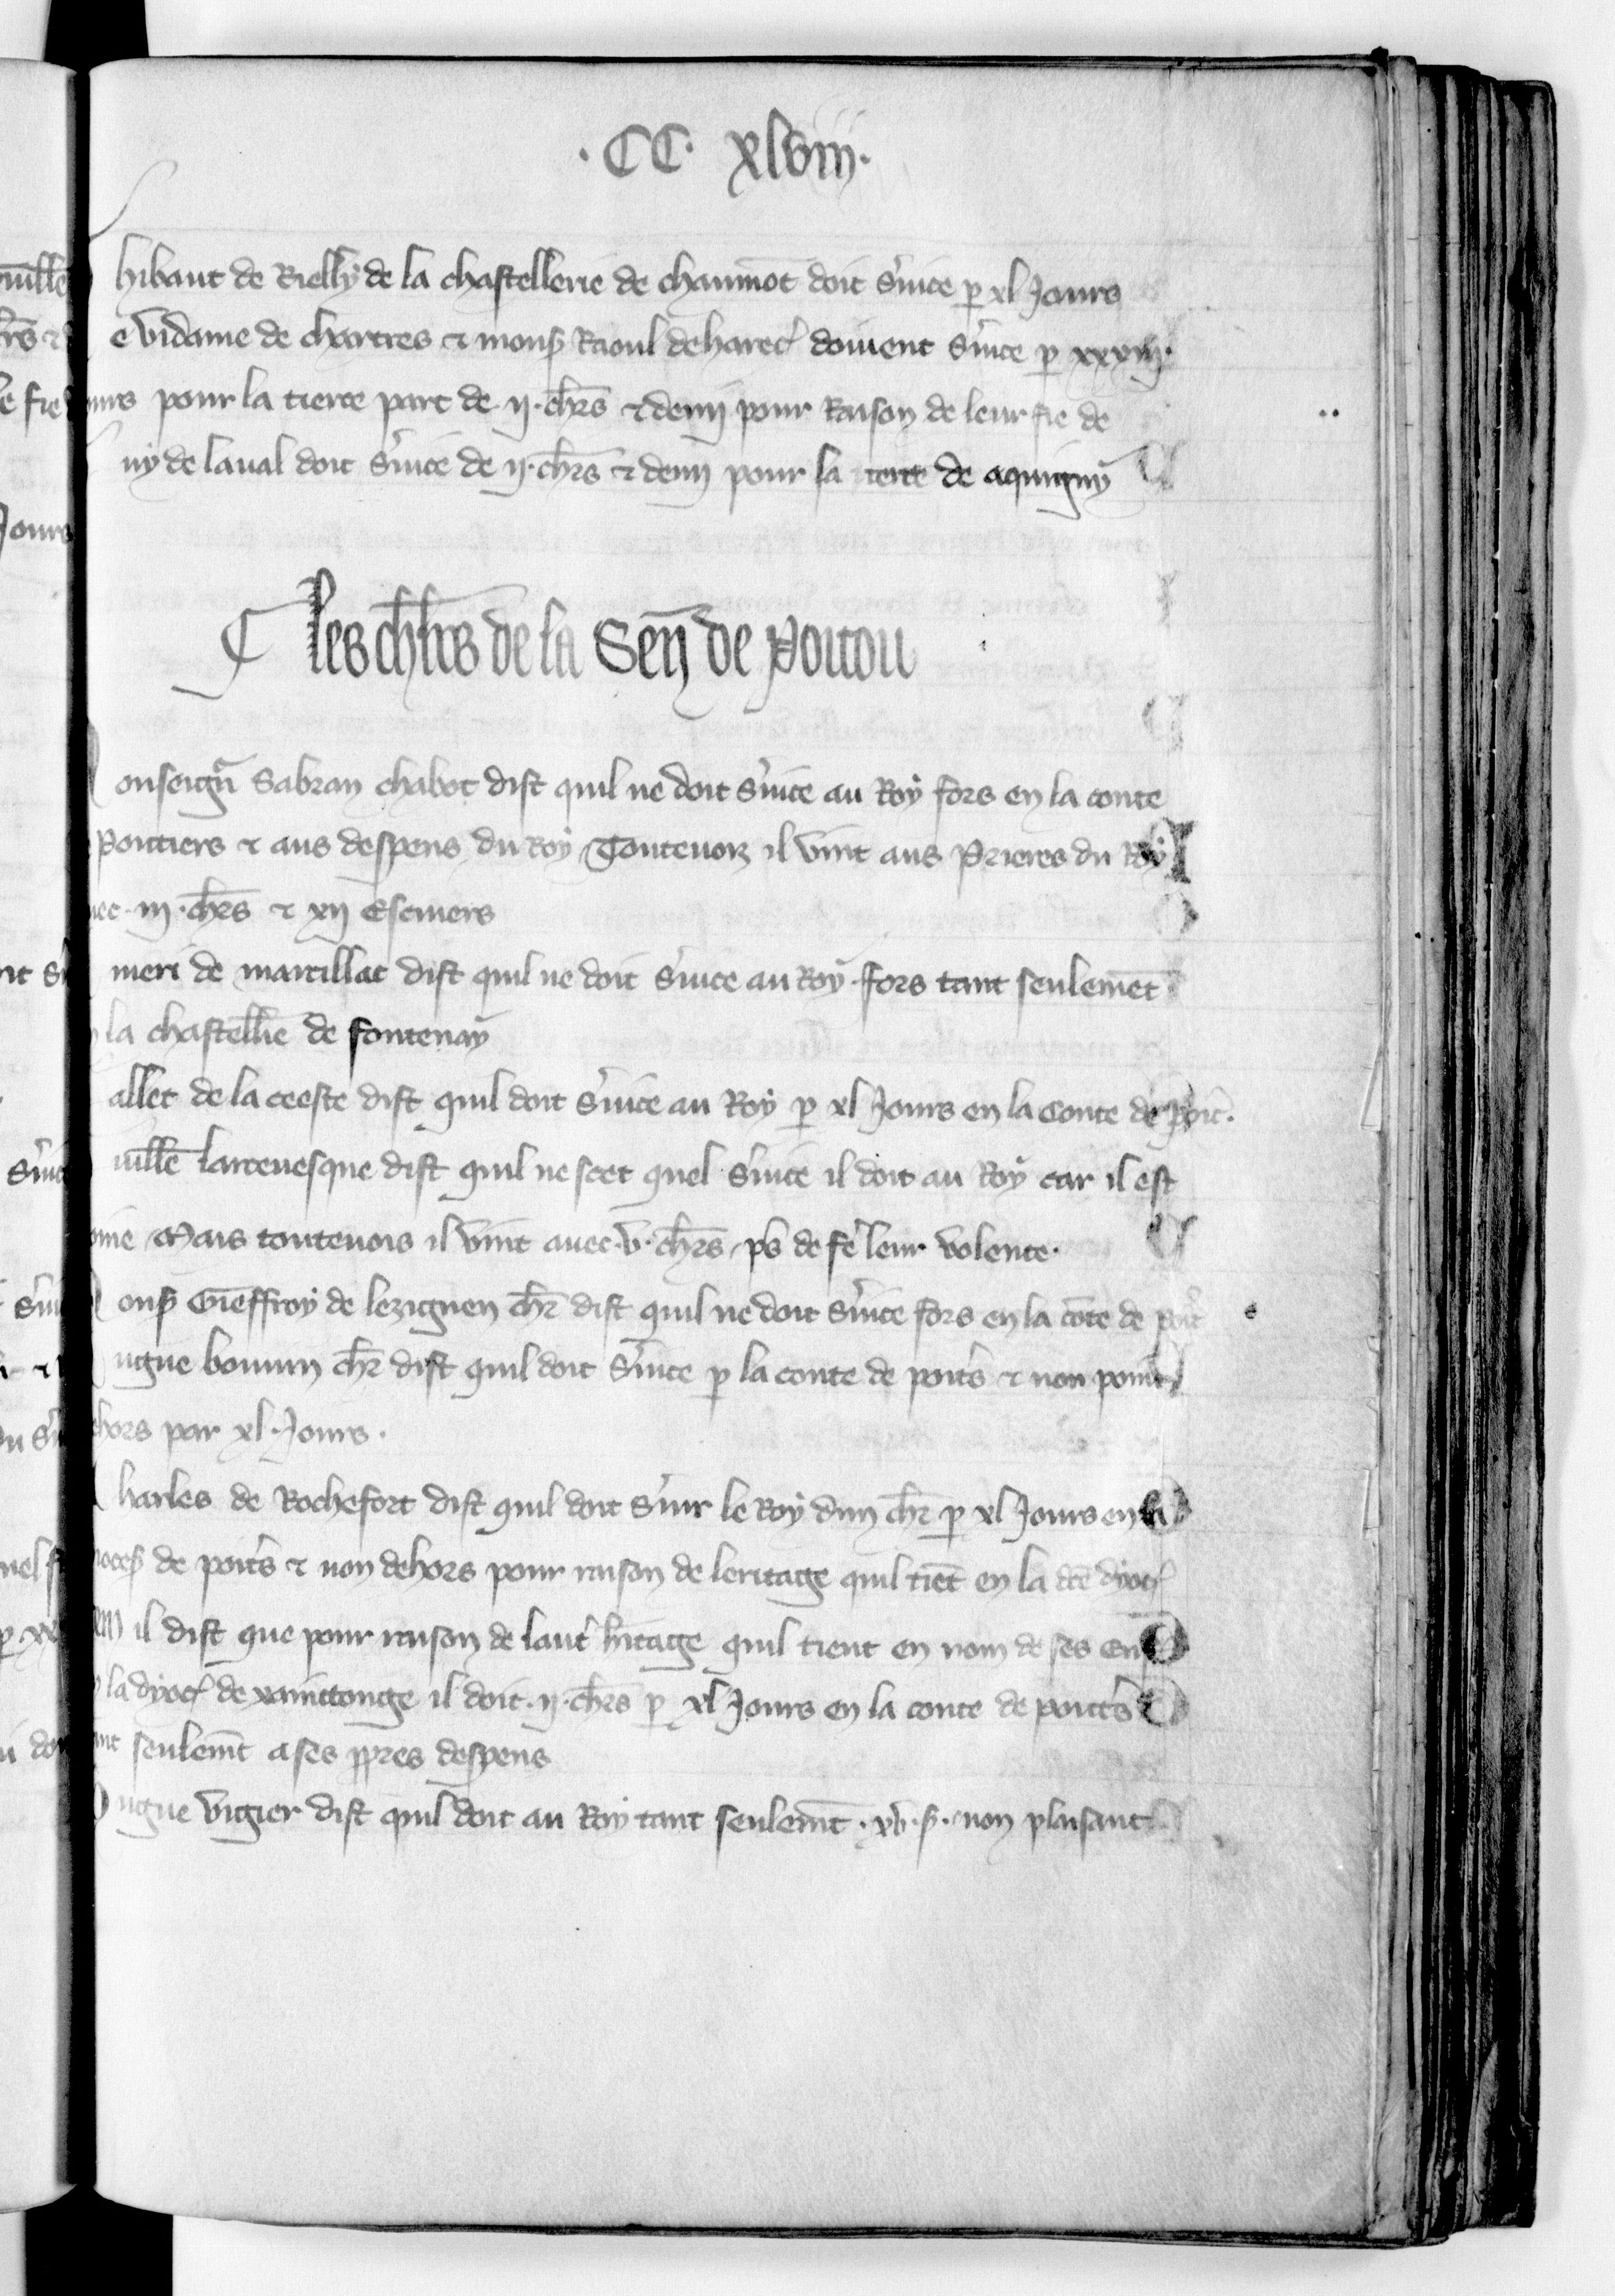 .CC. xlviij.
hibaut de Rielly de la chastellerie de chaumōt doit s'uice p xl Jours
e vidame de chartres & mons Raoul de harec' doiuent s'uice p xxviij.
ours pour la tierce part de ij. ch'rs & demj pour Raison de leur fie de
uy de laual doit s'uice de ij. ch'rs & demj pour la terre de aquigny
les ch'lrs de la Sen de Poitou
onseign' Sabran chabot dist quil ne doit s'uice au Roy fors en la conte
Poitiers & aus despens du Roy Toutenoiz il vint aus Prieres du Roy
uec. iij. ch'rs & xij Escuiers
meri de marcillac dist quil ne doit s'uice au Roy fors tant seulemēt
la chastell'ie de fontenay
allet de la ceeste dist quil doit s'uice au Roy p xl Jours en la Conte de poit'.
uill'e larceuesque dist quil ne scet quel s'uice il doit au Roy car il est
Mais toutenois il vint auec. v. ch'rs p's de fe' leur volente.
ons Gieffroy de lezignen ch'r dist quil ne doit s'uice fors en la cōte de poit'
ugue bouuin ch'r dist quil doit s'uice p la conte de poit's & non point
ehors par xl. Jours.
harles de Rochefort dist quil doit s'uir le Roy dun ch'r p xl Jours en la
de poit's & non dehors pour raison de leritage quil tiēt en la dce dyoc'
em il dist que pour raison de laut' h'itage quil tient en nom de ses en
la dyoc' de xainctonge il doit. ij. ch'rs p xl Jours en la conte de poict's
ant seulemt a ses ppres despens
ugue vigier dist quil doit au Roy tant seulemt. xv. s. non plaisant